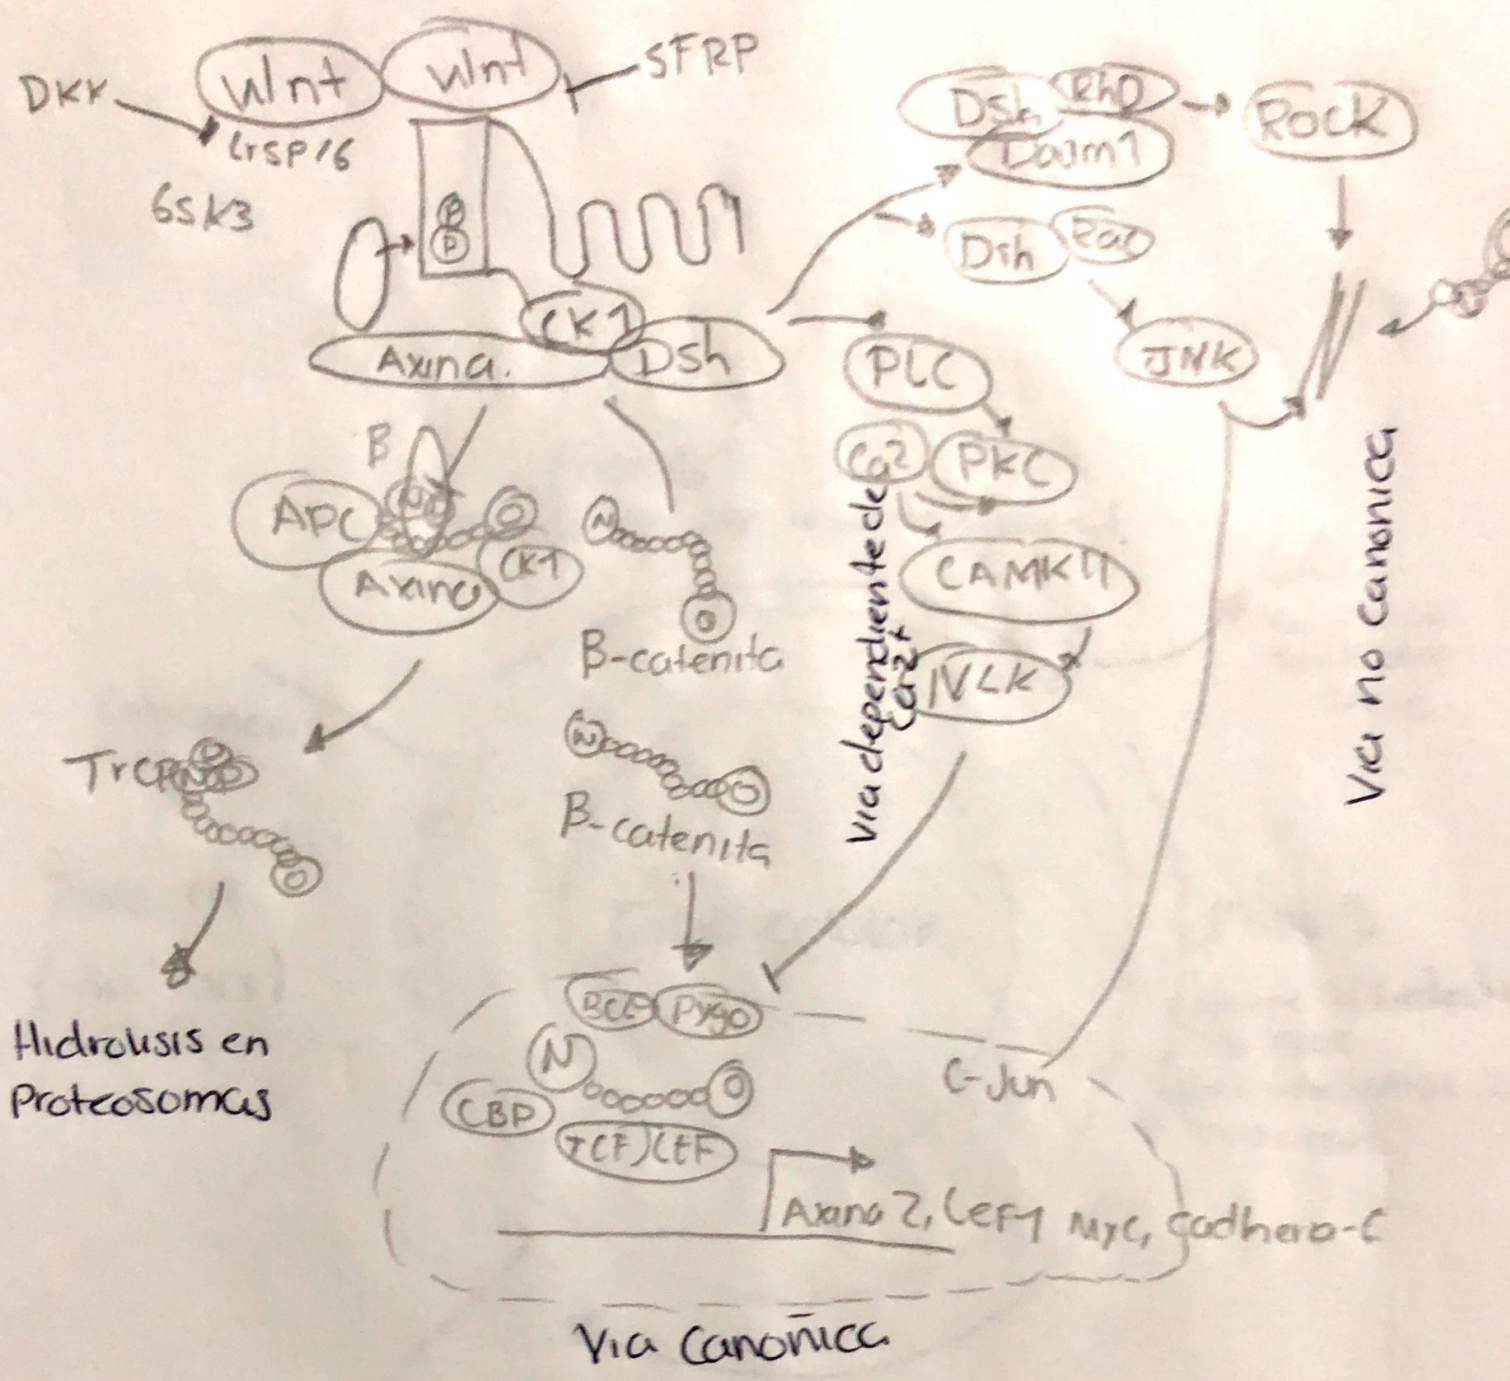 Wnt
Wnt
SFRP
DKK
LrSP/6
GSK3
P
P
CK1
Axina.
Dsh
Dsh
Rho
Daam1
ROCK
Dsh
Rac
JNK
PLC
Ca2
PKC
CAMKII
NLK
Via dependiente de
Ca2+
Via no canonica
B
APC
N
O
Axina
CK1
N
O
B-catenita
N
O
B-catenita
TrCP
N
O
Hidrolisis en
Proteosomas
BCL9
Pygo
N
O
CBP
TCF/LEF
C-Jun
Axina 2, Lef1 Myc, Cadhera-C
Via Canoñica